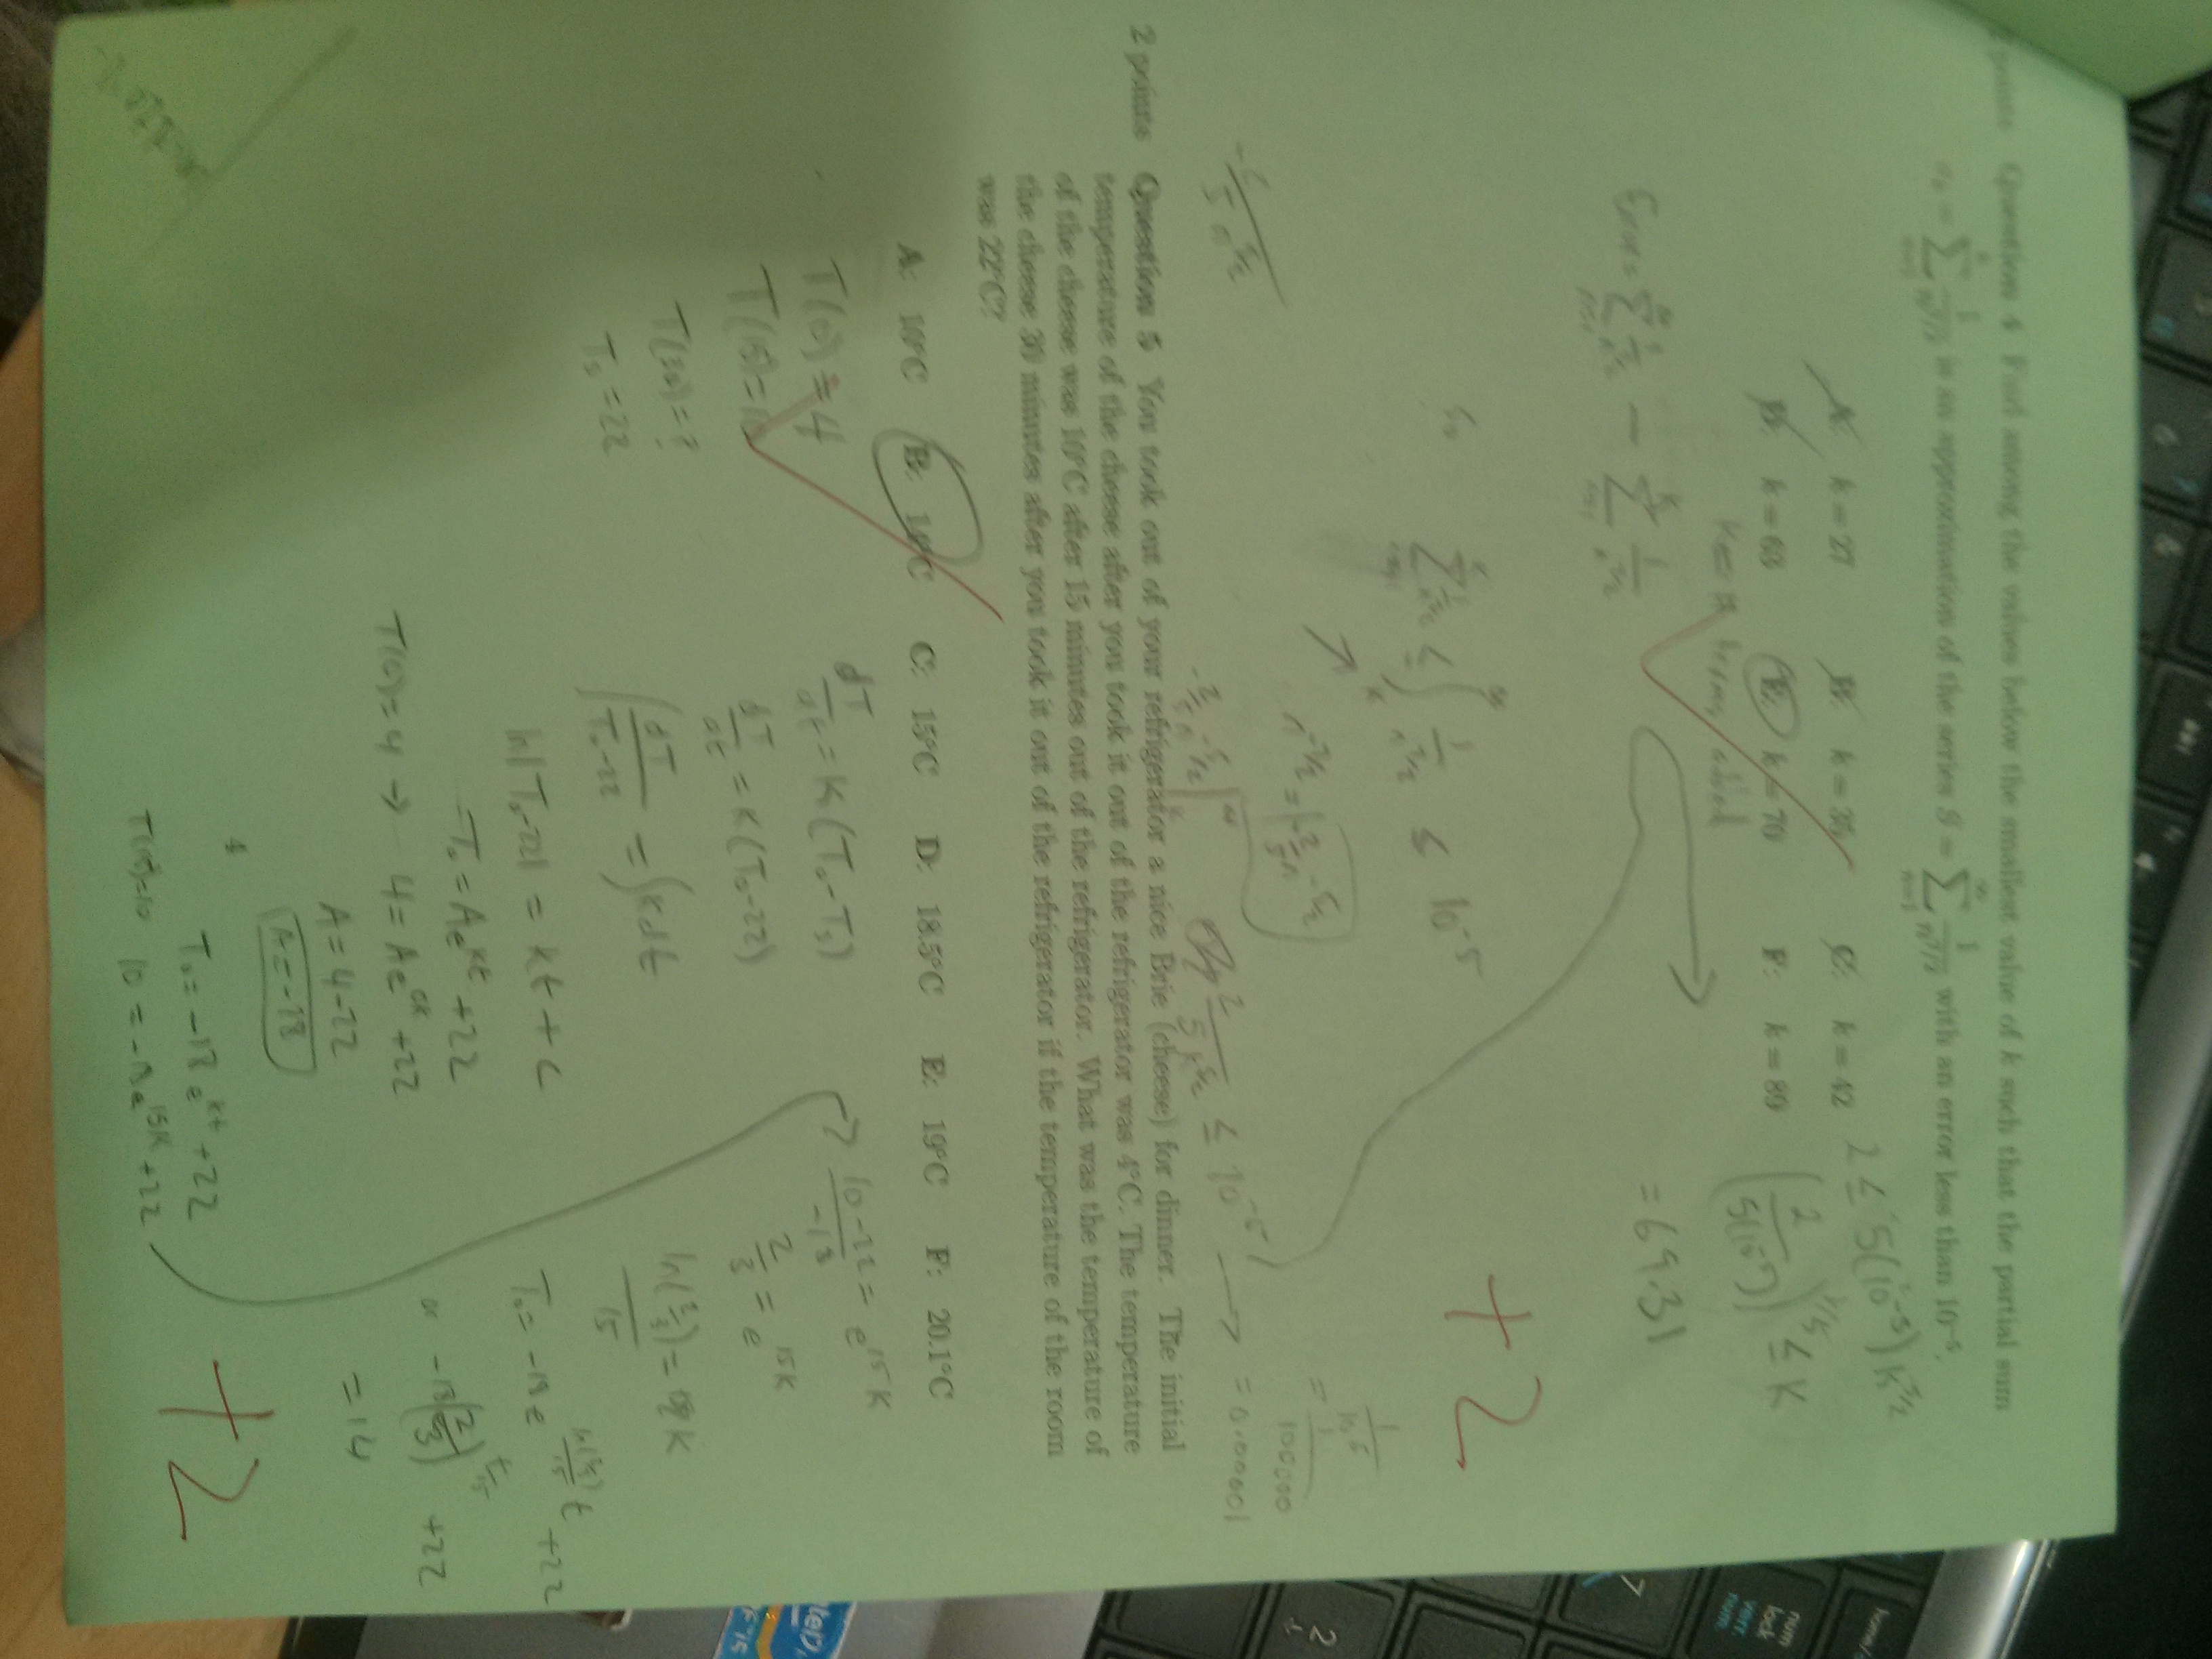 2 points Question 4 Find among the values below the smallest value of k such that the partial sum
s_k = ∑_{n=1}^{k} 1/n^{7/2} is an approximation of the series S = ∑_{n=1}^{∞} 1/n^{7/2} with an error less than 10^{-5}.
A: k = 27 B: k = 35 C: k = 42
D: k = 63 E: k = 70 F: k = 89
K = # terms added
Error = ∑_{n=1}^{∞} 1/n^{7/2} - ∑_{n=1}^{k} 1/n^{7/2}
2 ≤ 5(10^{-5}) k^{5/2}
≤ K
= 69.31
≤ ∫_k^∞ 1/n^{7/2} ≤ 10^{-5}
+2
2/5k^{5/2} ≤ 10^{-5} → = 0.00001
= 1/100000
2 points Question 5 You took out of your refrigerator a nice Brie (cheese) for dinner. The initial
temperature of the cheese after you took it out of the refrigerator was 4°C. The temperature
of the cheese was 10°C after 15 minutes out of the refrigerator. What was the temperature of
the cheese 30 minutes after you took it out of the refrigerator if the temperature of the room
was 22°C?
A: 10°C B: 14°C C: 15°C D: 18.5°C E: 19°C F: 20.1°C
T(0) = 4
T(15) = 10
T(30) = ?
Ts = 22
dT/dt = K(To - Ts)
dT/dt = K(To - 22)
∫ dT/To-22 = ∫ kdt
ln|To-22| = kt + C
To = Ae^{kt} + 22
T(0) = 4 → 4 = Ae^{0k} + 22
A = 4 - 22
A = -18
To = -18e^{kt} + 22
T(15)=10 10 = -18e^{15K} + 22
10-22/-18 = e^{15K}
2/3 = e^{15K}
ln(2/3)/15 = K
To = -18e^{ln(2/3)/15 t} + 22
or -18(2/3)^{t/15} + 22
= 14
+2
4
num
lock
verr.
num
home/
7
2